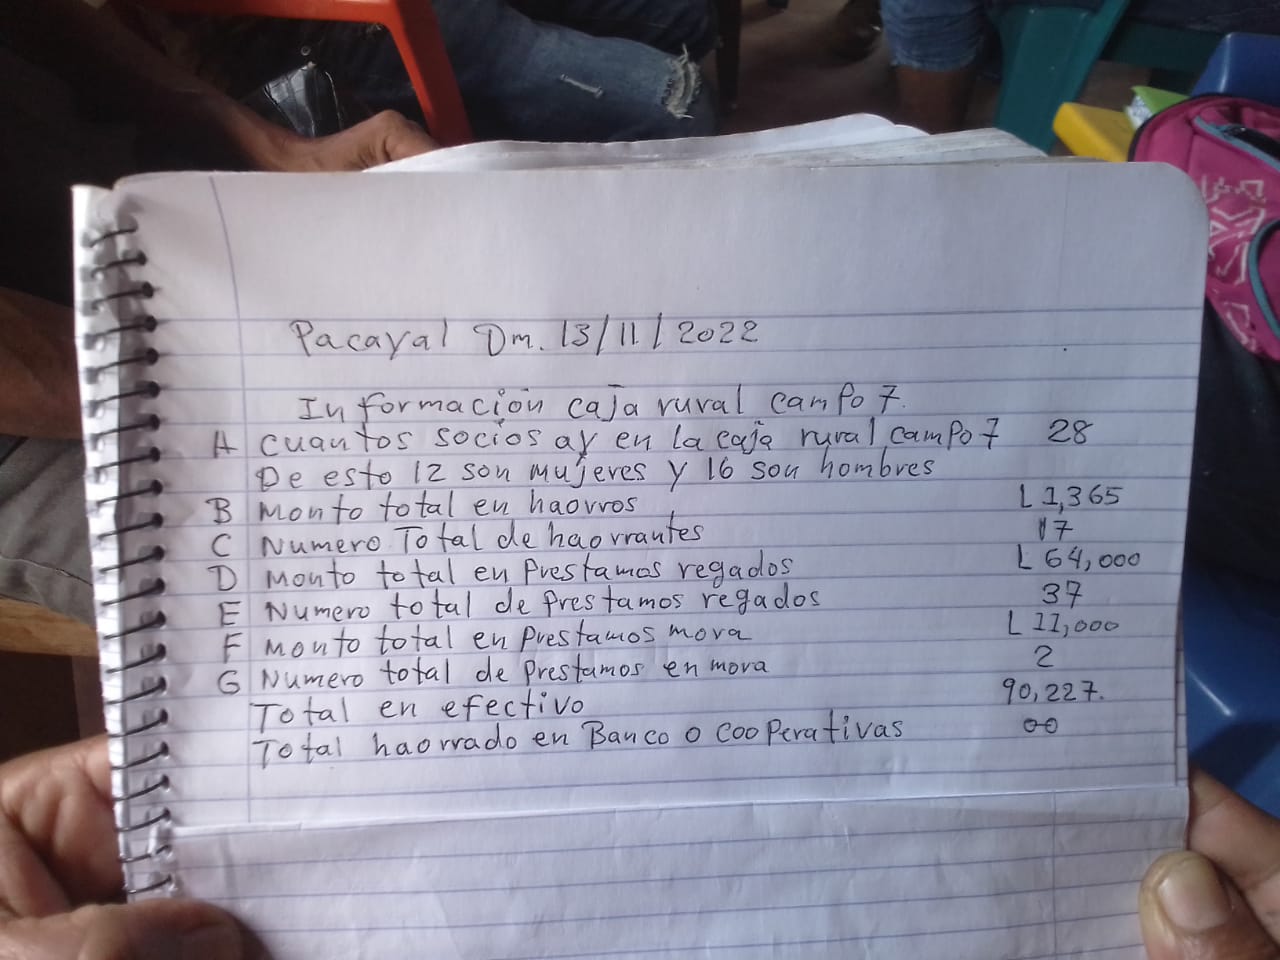 Pacayal Dm. 13/11/2022
Información caja rural campo 7.
A cuantos socios ay en la caja rural campo 7 28
De esto 12 son mujeres y 16 son hombres
B Monto total en haorros L 1,365
C Numero Total de haorrantes 17
D Monto total en Prestamos regados L 64,000
E Numero total de prestamos regados 37
F Monto total en prestamos mora L 11,000
G Numero total de prestamos en mora 2
Total en efectivo 90,227.
Total haorrado en Banco o cooperativas 00